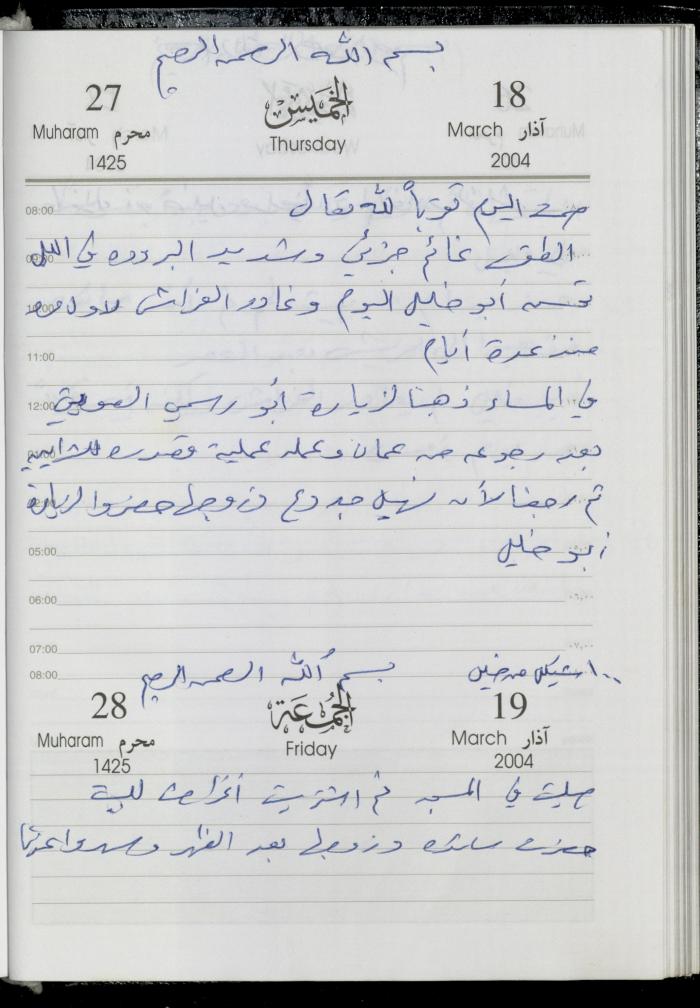 بسم الله الرحمن الرحيم
27 الخميس 18
Muharam محرم Thursday March آذار
1425 2004
صمت اليوم تقرباً لله تعالى
08:00
الطقس غائم جزئي وشديد البرودة في الليل
09:00
تحسن أبو خليل اليوم وغادر الفراش لأول مرة
10:00
منذ عدة أيام
11:00
في المساء ذهبنا لزيارة أبو رسمي
12:00
بعد رجوعه من عمان وعمله عملية قصدرة للشرايين
ثم رجعنا لأن نهيل جدوع وزوجها حضروا لزيارة
أبو خليل
05:00
06:00 ٠٦,٠٠
07:00 ٠٧,٠٠
08:00
١٠٠ شيكل من خليل
بسم الله الرحمن الرحيم
28 الجمعة 19
Muharam محرم Friday March آذار
1425 2004
صليت في المسجد ثم اشتريت أغراض للبيت
حضرت سائدة وزوجها بعد الظهر